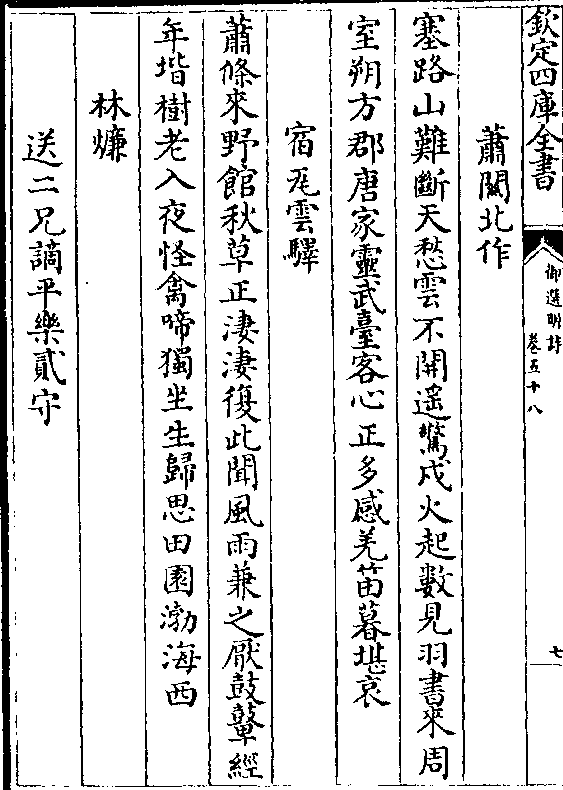 欽定四庫全書
蕭關北作
塞路山難斷天愁雲不開遥驚戍火起數見羽書來周
室朔方郡唐家靈武臺客心正多感羌笛暮堪哀
宿瓦雲驛
蕭條來野館秋草正淒淒復此聞風雨兼之厭鼓鼙經
年堦樹老入夜怪禽啼獨坐生歸思田園渤海西
林㷰
送二兄謫平樂貳守
御選明詩
卷五十八
七